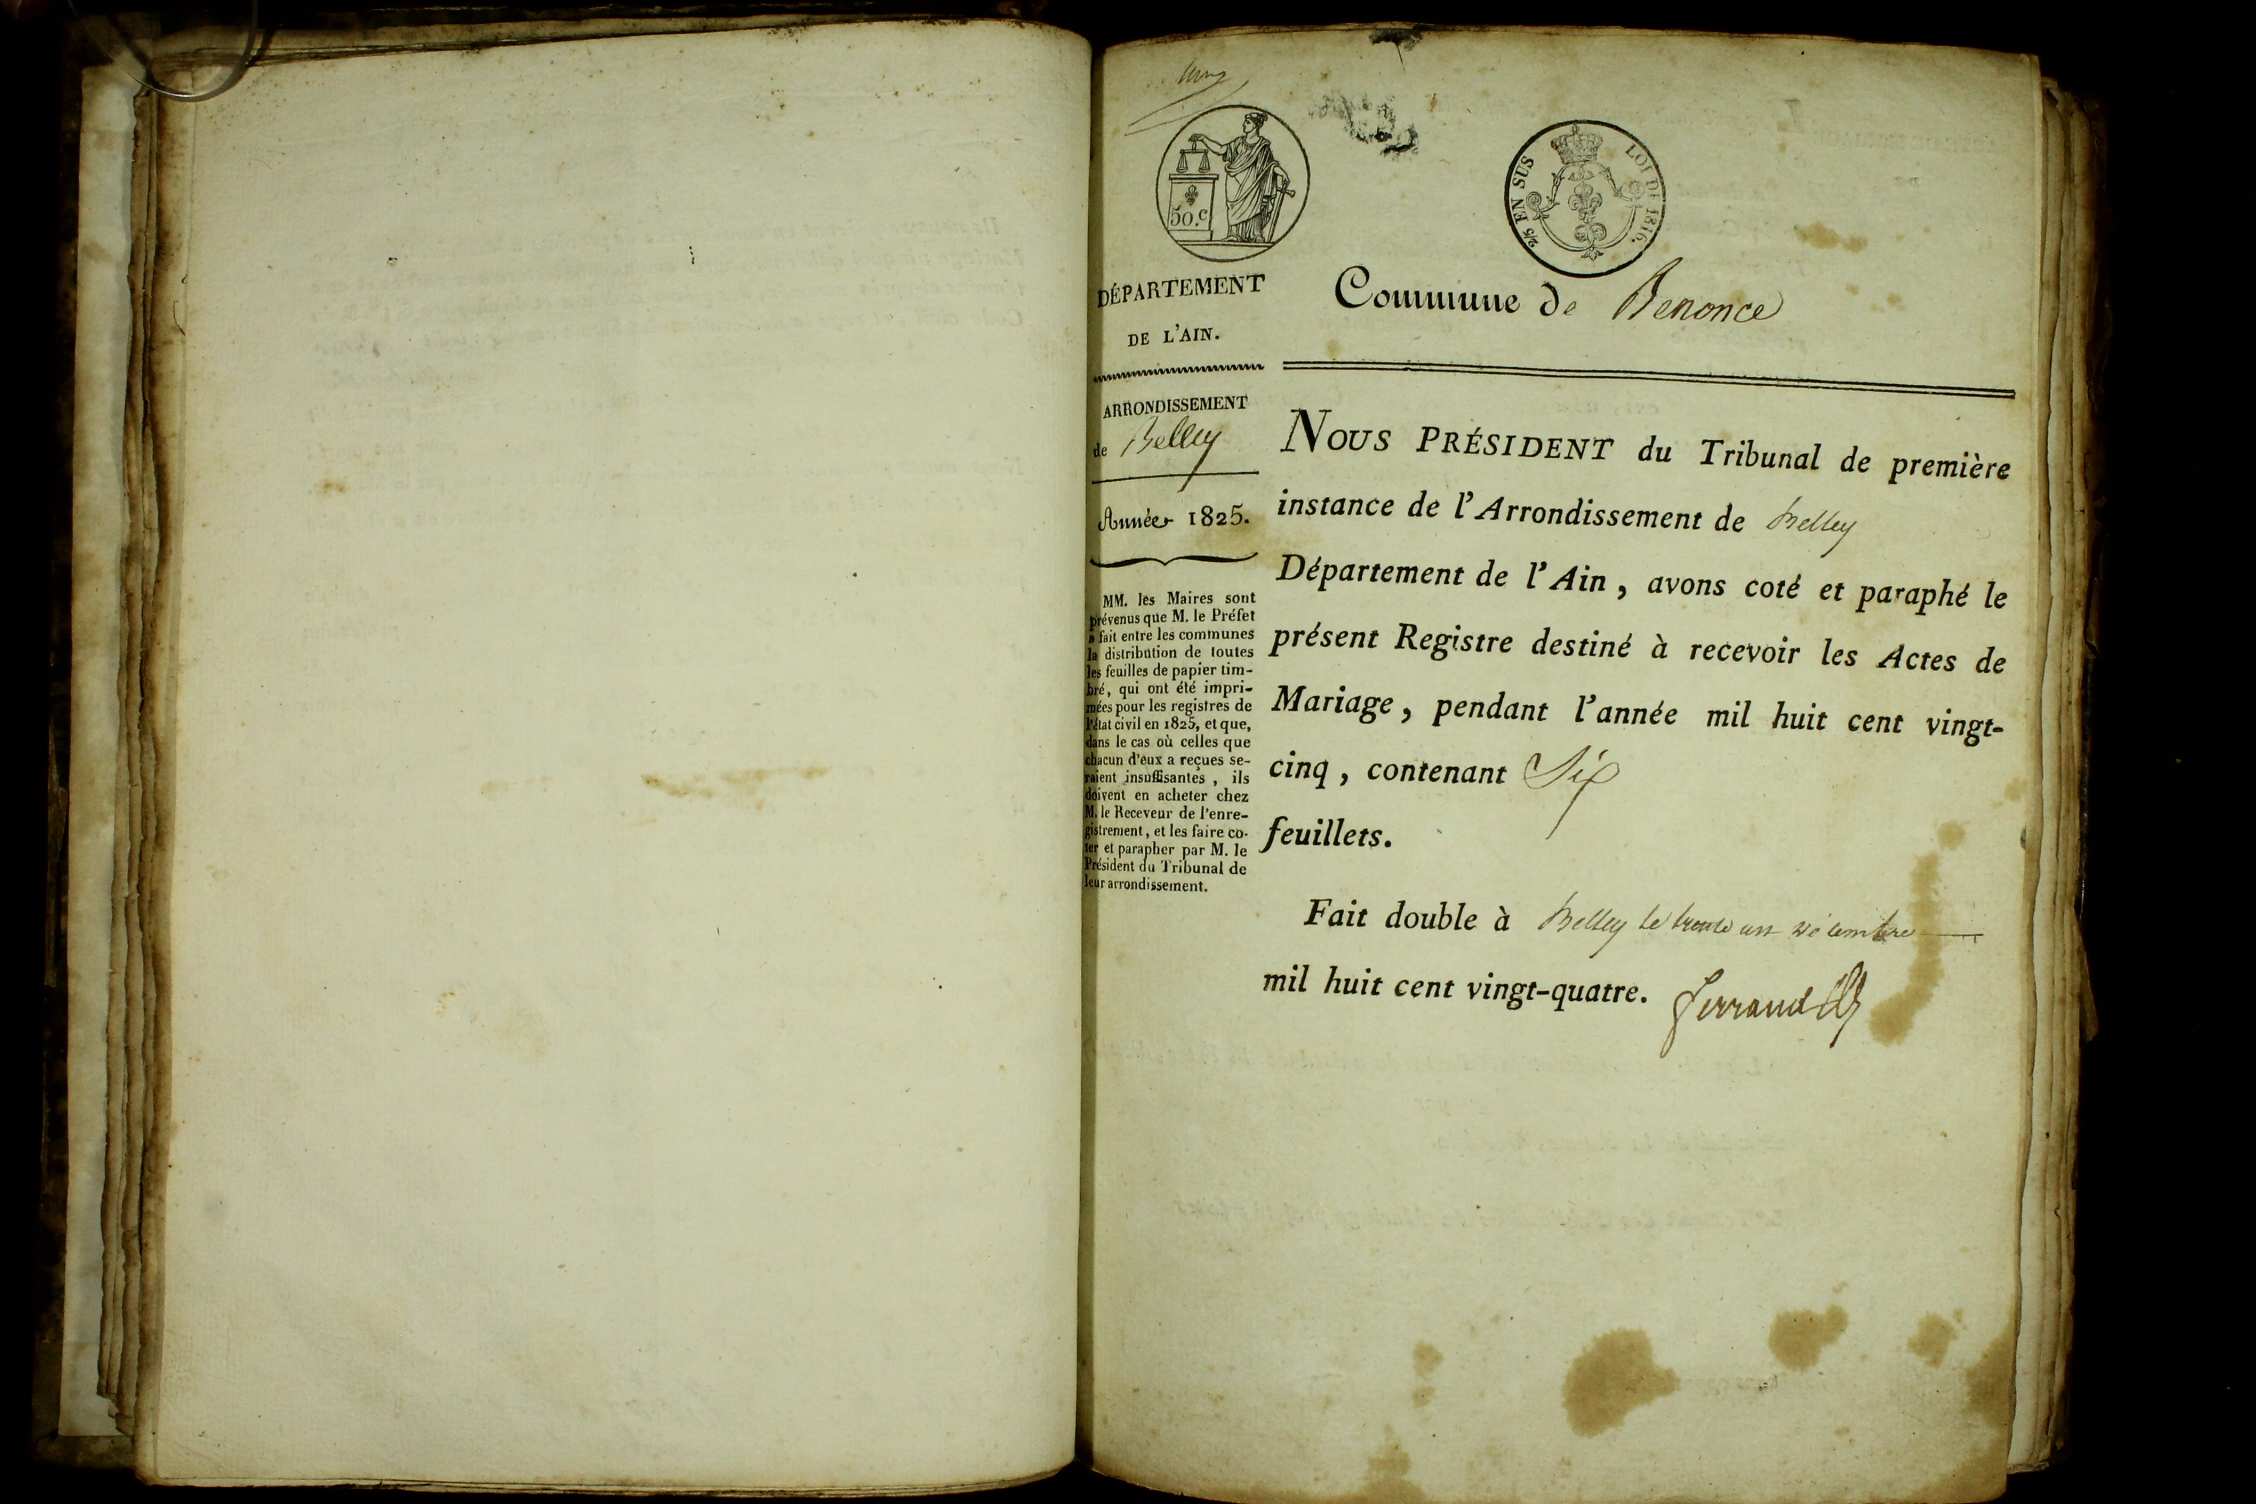 50.c
2/5 EN SUS
LOI DE 1816.
DÉPARTEMENT
DE L'AIN.
ARRONDISSEMENT
de Belley
Année 1825.
MM. les Maires sont
prévenus que M. le Préfet
a fait entre les communes
la distribution de toutes
les feuilles de papier tim-
bré, qui ont été impri-
mées pour les registres de
l'état civil en 1825, et que,
dans le cas où celles que
chacun d'eux a reçues se-
raient insuffisantes, ils
doivent en acheter chez
M. le Receveur de l'enre-
gistrement, et les faire co-
ter et parapher par M. le
Président du Tribunal de
leur arrondissement.
Commune de Benonce
NOUS PRÉSIDENT du Tribunal de première
instance de l'Arrondissement de Belley
Département de l'Ain, avons coté et paraphé le
présent Registre destiné à recevoir les Actes de
Mariage, pendant l'année mil huit cent vingt-
cinq, contenant Six
feuillets.
Fait double à Belley le trente un décembre
mil huit cent vingt-quatre. Ferrand